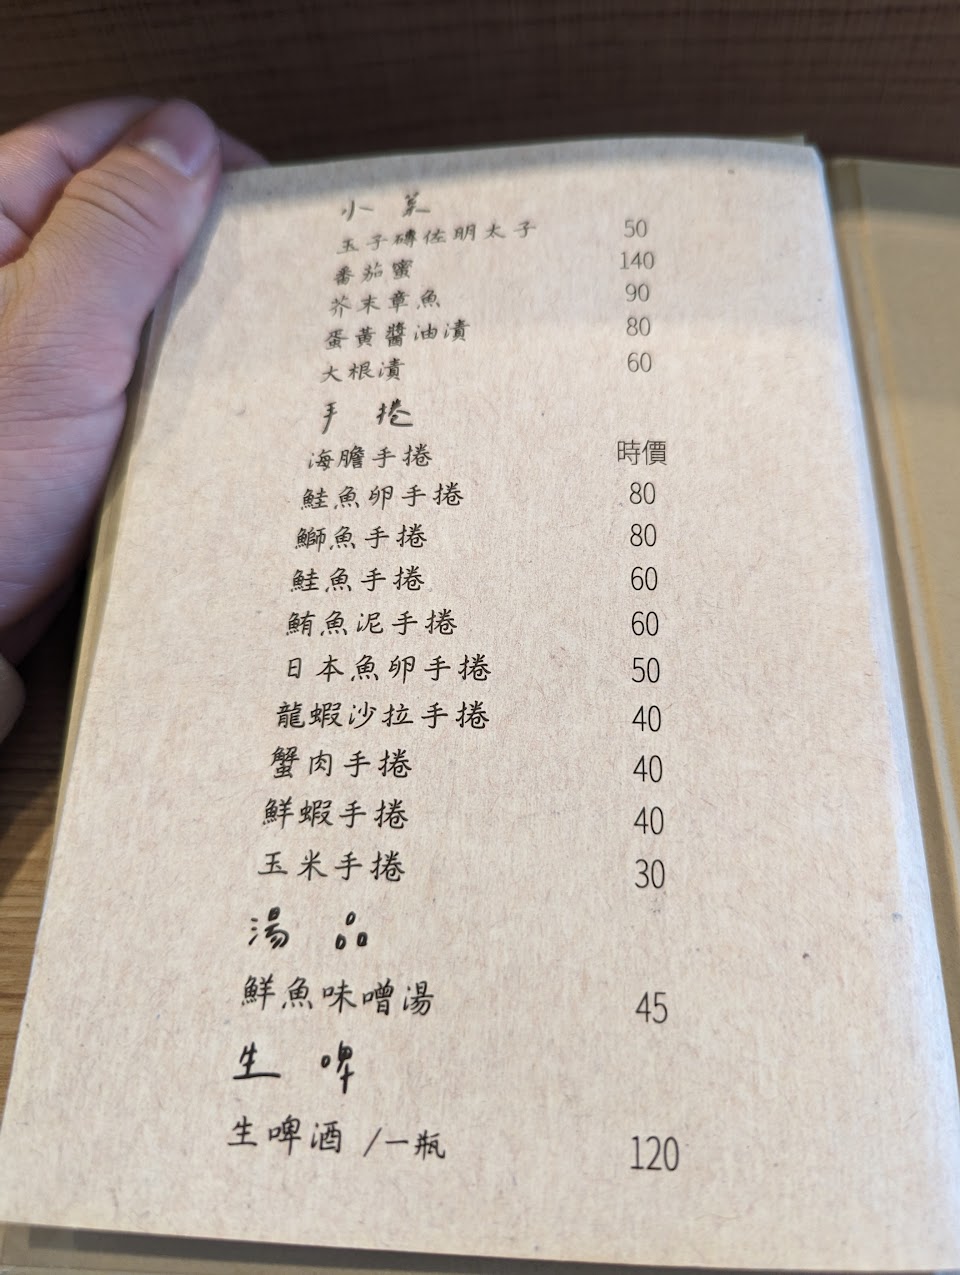 小菜
玉子磚佐明太子 50
番茄蜜 140
芥末章魚 90
蛋黃醬油漬 80
大根漬 60
手捲
海膽手捲 時價
鮭魚卵手捲 80
鰤魚手捲 80
鮭魚手捲 60
鮪魚泥手捲 60
日本魚卵手捲 50
龍蝦沙拉手捲 40
蟹肉手捲 40
鮮蝦手捲 40
玉米手捲 30
湯品
鮮魚味噌湯 45
生啤
生啤酒 /一瓶 120